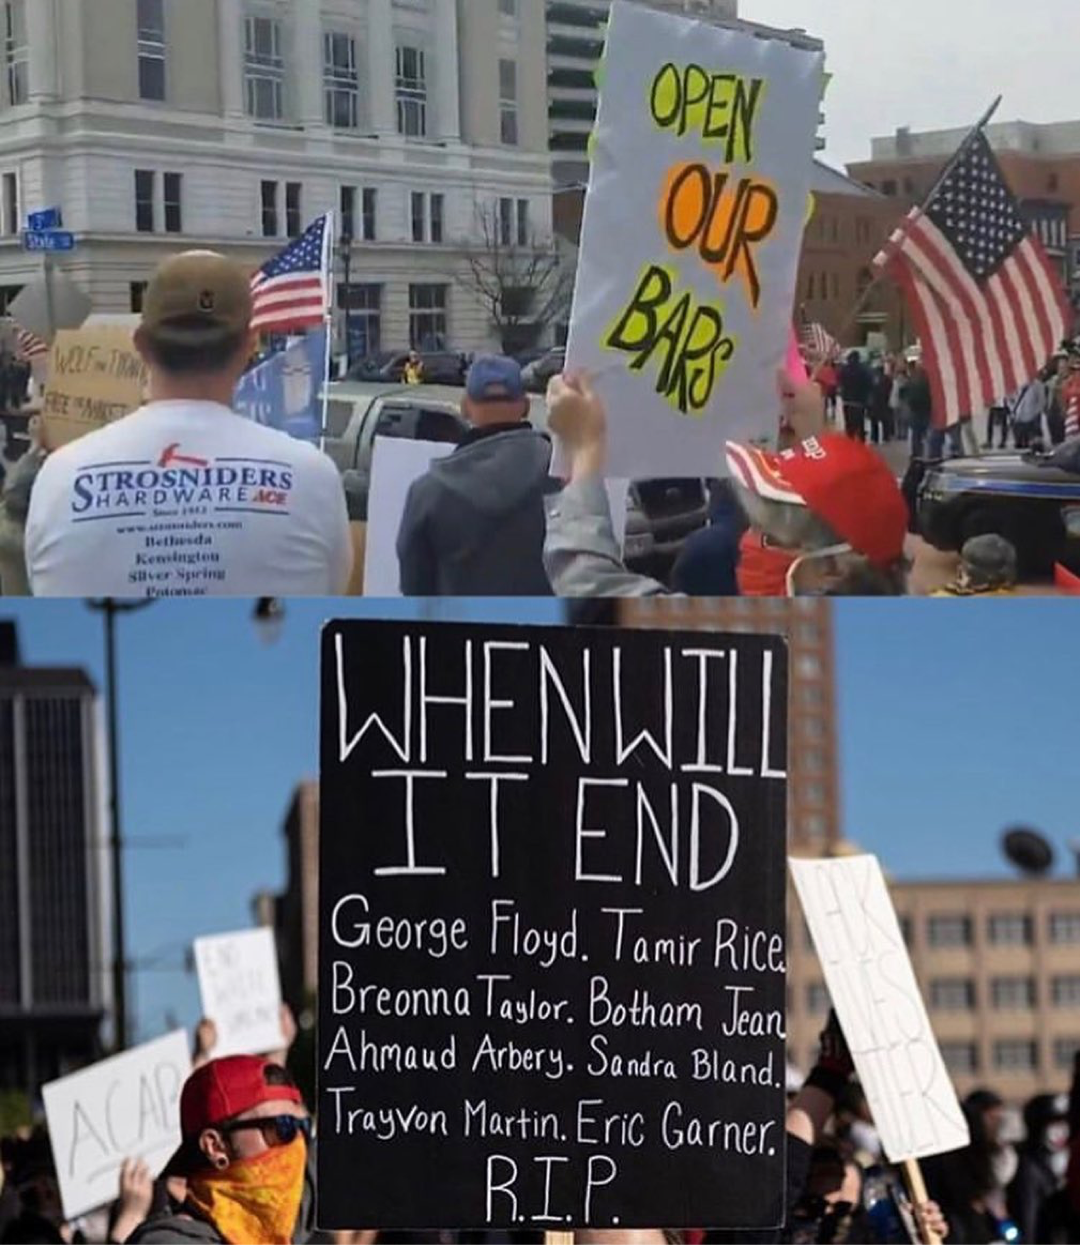 OPEN
OUR
BARS
State
WOLF
FREE
STROSNIDERS
HARDWARE ACE
Since 1953
Bethesda
Kensington
Silver Spring
Potomac
WHEN WILL
IT END
George Floyd. Tamir Rice
Breonna Taylor. Botham Jean
Ahmaud Arbery. Sandra Bland.
Trayvon Martin. Eric Garner.
R.I.P.
ACAB